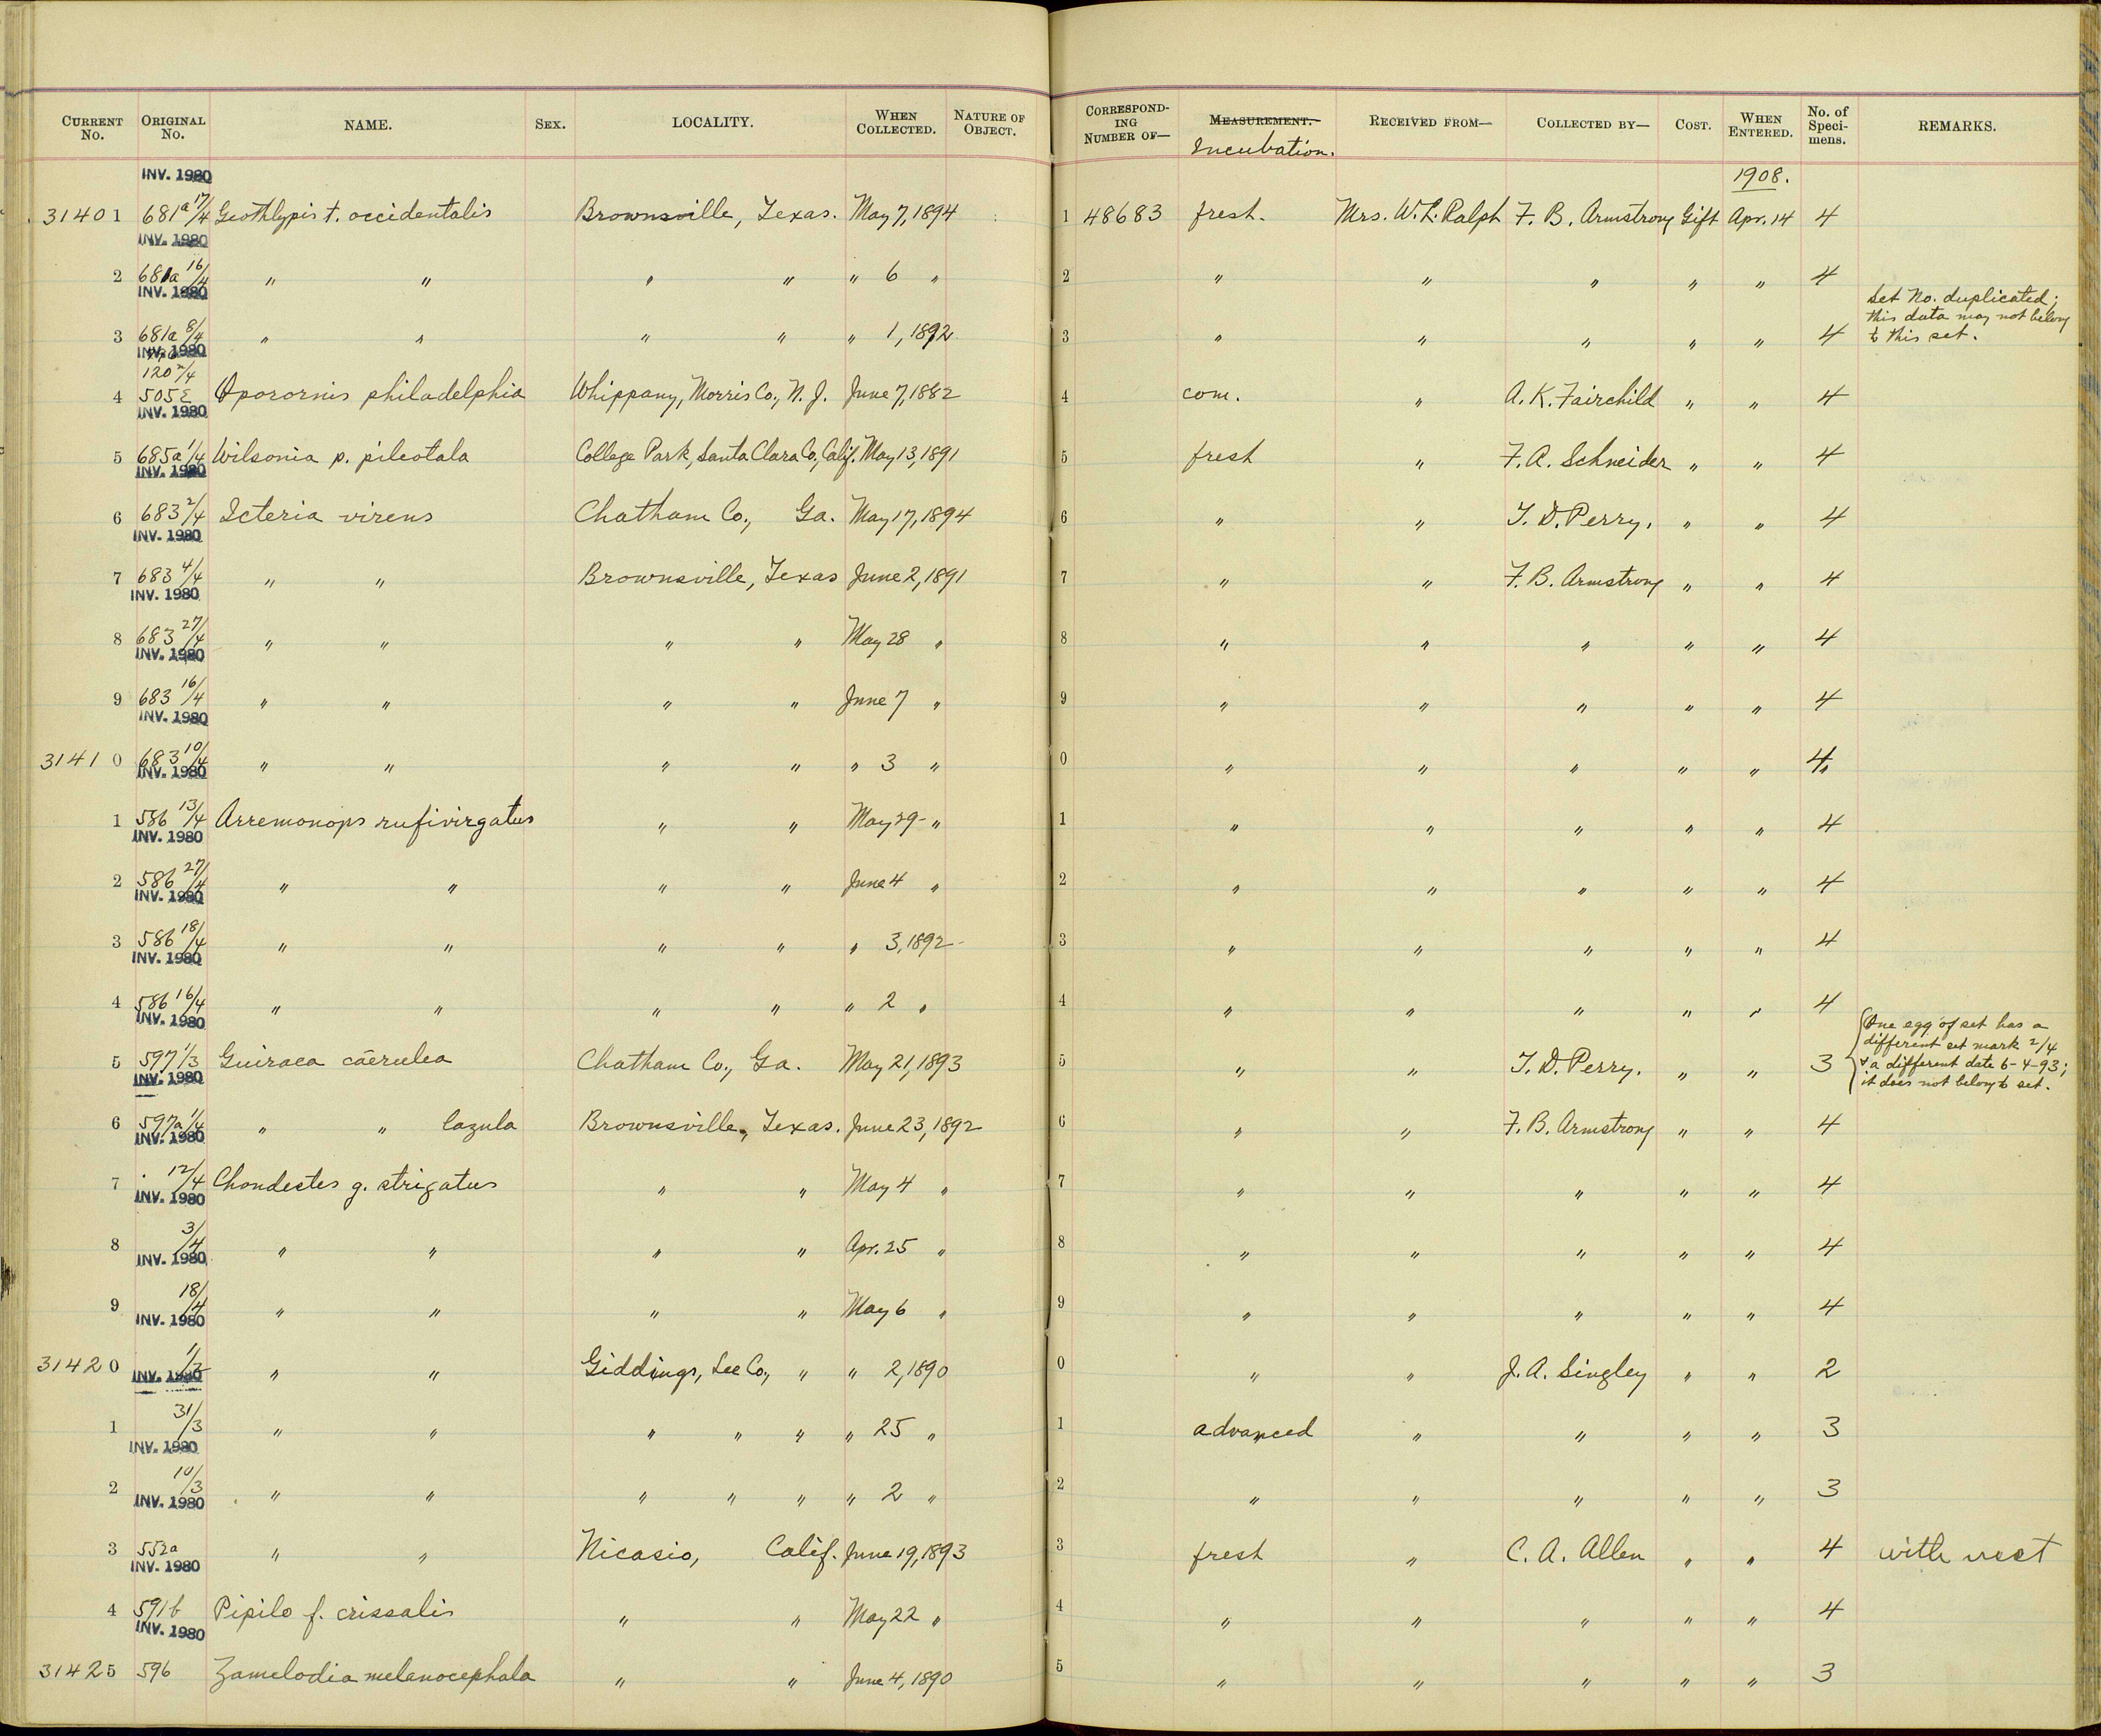 CURRENT No. ORIGINAL No. NAME. SEX. LOCALITY. WHEN COLLECTED. NATURE OF OBJECT. CORRESPOND-ING NUMBER OF— MEASUREMENT. Incubation. RECEIVED FROM— COLLECTED BY— COST. WHEN ENTERED. No. of Speci-mens. REMARKS.
INV. 1980 1908.
31401 681a 17/4 Geothlypis t. occidentalis Brownsville, Texas. May 7, 1894 1 48683 fresh. Mrs. W. L. Ralph F. B. Armstrong Gift Apr. 14 4
INV. 1980
2 681a 16/4 " " " " " 6 " 2 " " " " " 4
INV. 1980
3 681a 8/4 " " " " " 1, 1892 3 " " " " " 4 Set No. duplicated; this data may not belong to this set.
INV. 1980
120 2/4
4 505 Oporornis philadelphia Whippany, Morris Co., N. J. June 7, 1882 4 com. " A. K. Fairchild " " 4
INV. 1980
5 685a 1/4 Wilsonia p. pileotala College Park, Santa Clara Co, Calif. May 13, 1891 5 fresh " F. A. Schneider " " 4
INV. 1980
6 683 2/4 Icteria virens Chatham Co., Ga. May 17, 1894 6 " " T. D. Perry. " " 4
INV. 1980
7 683 4/4 " " Brownsville, Texas June 2, 1891 7 " " F. B. Armstrong " " 4
INV. 1980
8 683 27/4 " " " " May 28 " 8 " " " " " 4
INV. 1980
9 683 16/4 " " " " June 7 " 9 " " " " " 4
INV. 1980
31410 683 10/4 " " " " " 3 " 0 " " " " " 4
INV. 1980
1 586 13/4 Arremonops rufivirgatus " " May 29 " 1 " " " " " 4
INV. 1980
2 586 27/4 " " " " June 4 " 2 " " " " " 4
INV. 1980
3 586 18/4 " " " " " 3, 1892 3 " " " " " 4
INV. 1980
4 586 16/4 " " " " " 2 " 4 " " " " " 4
INV. 1980
5 597 1/3 Guiraca cærulea Chatham Co., Ga. May 21, 1893 5 " " T. D. Perry. " " 3 One egg of set has a different set mark 2/4 & a different date 6-4-93; it does not belong to set.
INV. 1980
6 597a 1/4 " " lazula Brownsville, Texas. June 23, 1892 6 " " F. B. Armstrong " " 4
INV. 1980
7 12/4 Chondestes g. strigatus " " May 4 " 7 " " " " " 4
INV. 1980
8 3/4 " " " " Apr. 25 " 8 " " " " " 4
INV. 1980
9 18/4 " " " " May 6 " 9 " " " " " 4
INV. 1980
31420 1/2 " " Giddings, Lee Co., " " 2, 1890 0 " " J. A. Singley " " 2
INV. 1980
1 31/3 " " " " " " 25 " 1 advanced " " " " 3
INV. 1980
2 10/3 " " " " " " 2 " 2 " " " " " 3
INV. 1980
3 552a " " Nicasio, Calif. June 19, 1893 3 fresh " C. A. Allen " " 4 with nest
INV. 1980
4 591b Pipilo f. crissalis " " May 22 " 4 " " " " " 4
INV. 1980
31425 596 Zamelodia melanocephala " " June 4, 1890 5 " " " " " 3